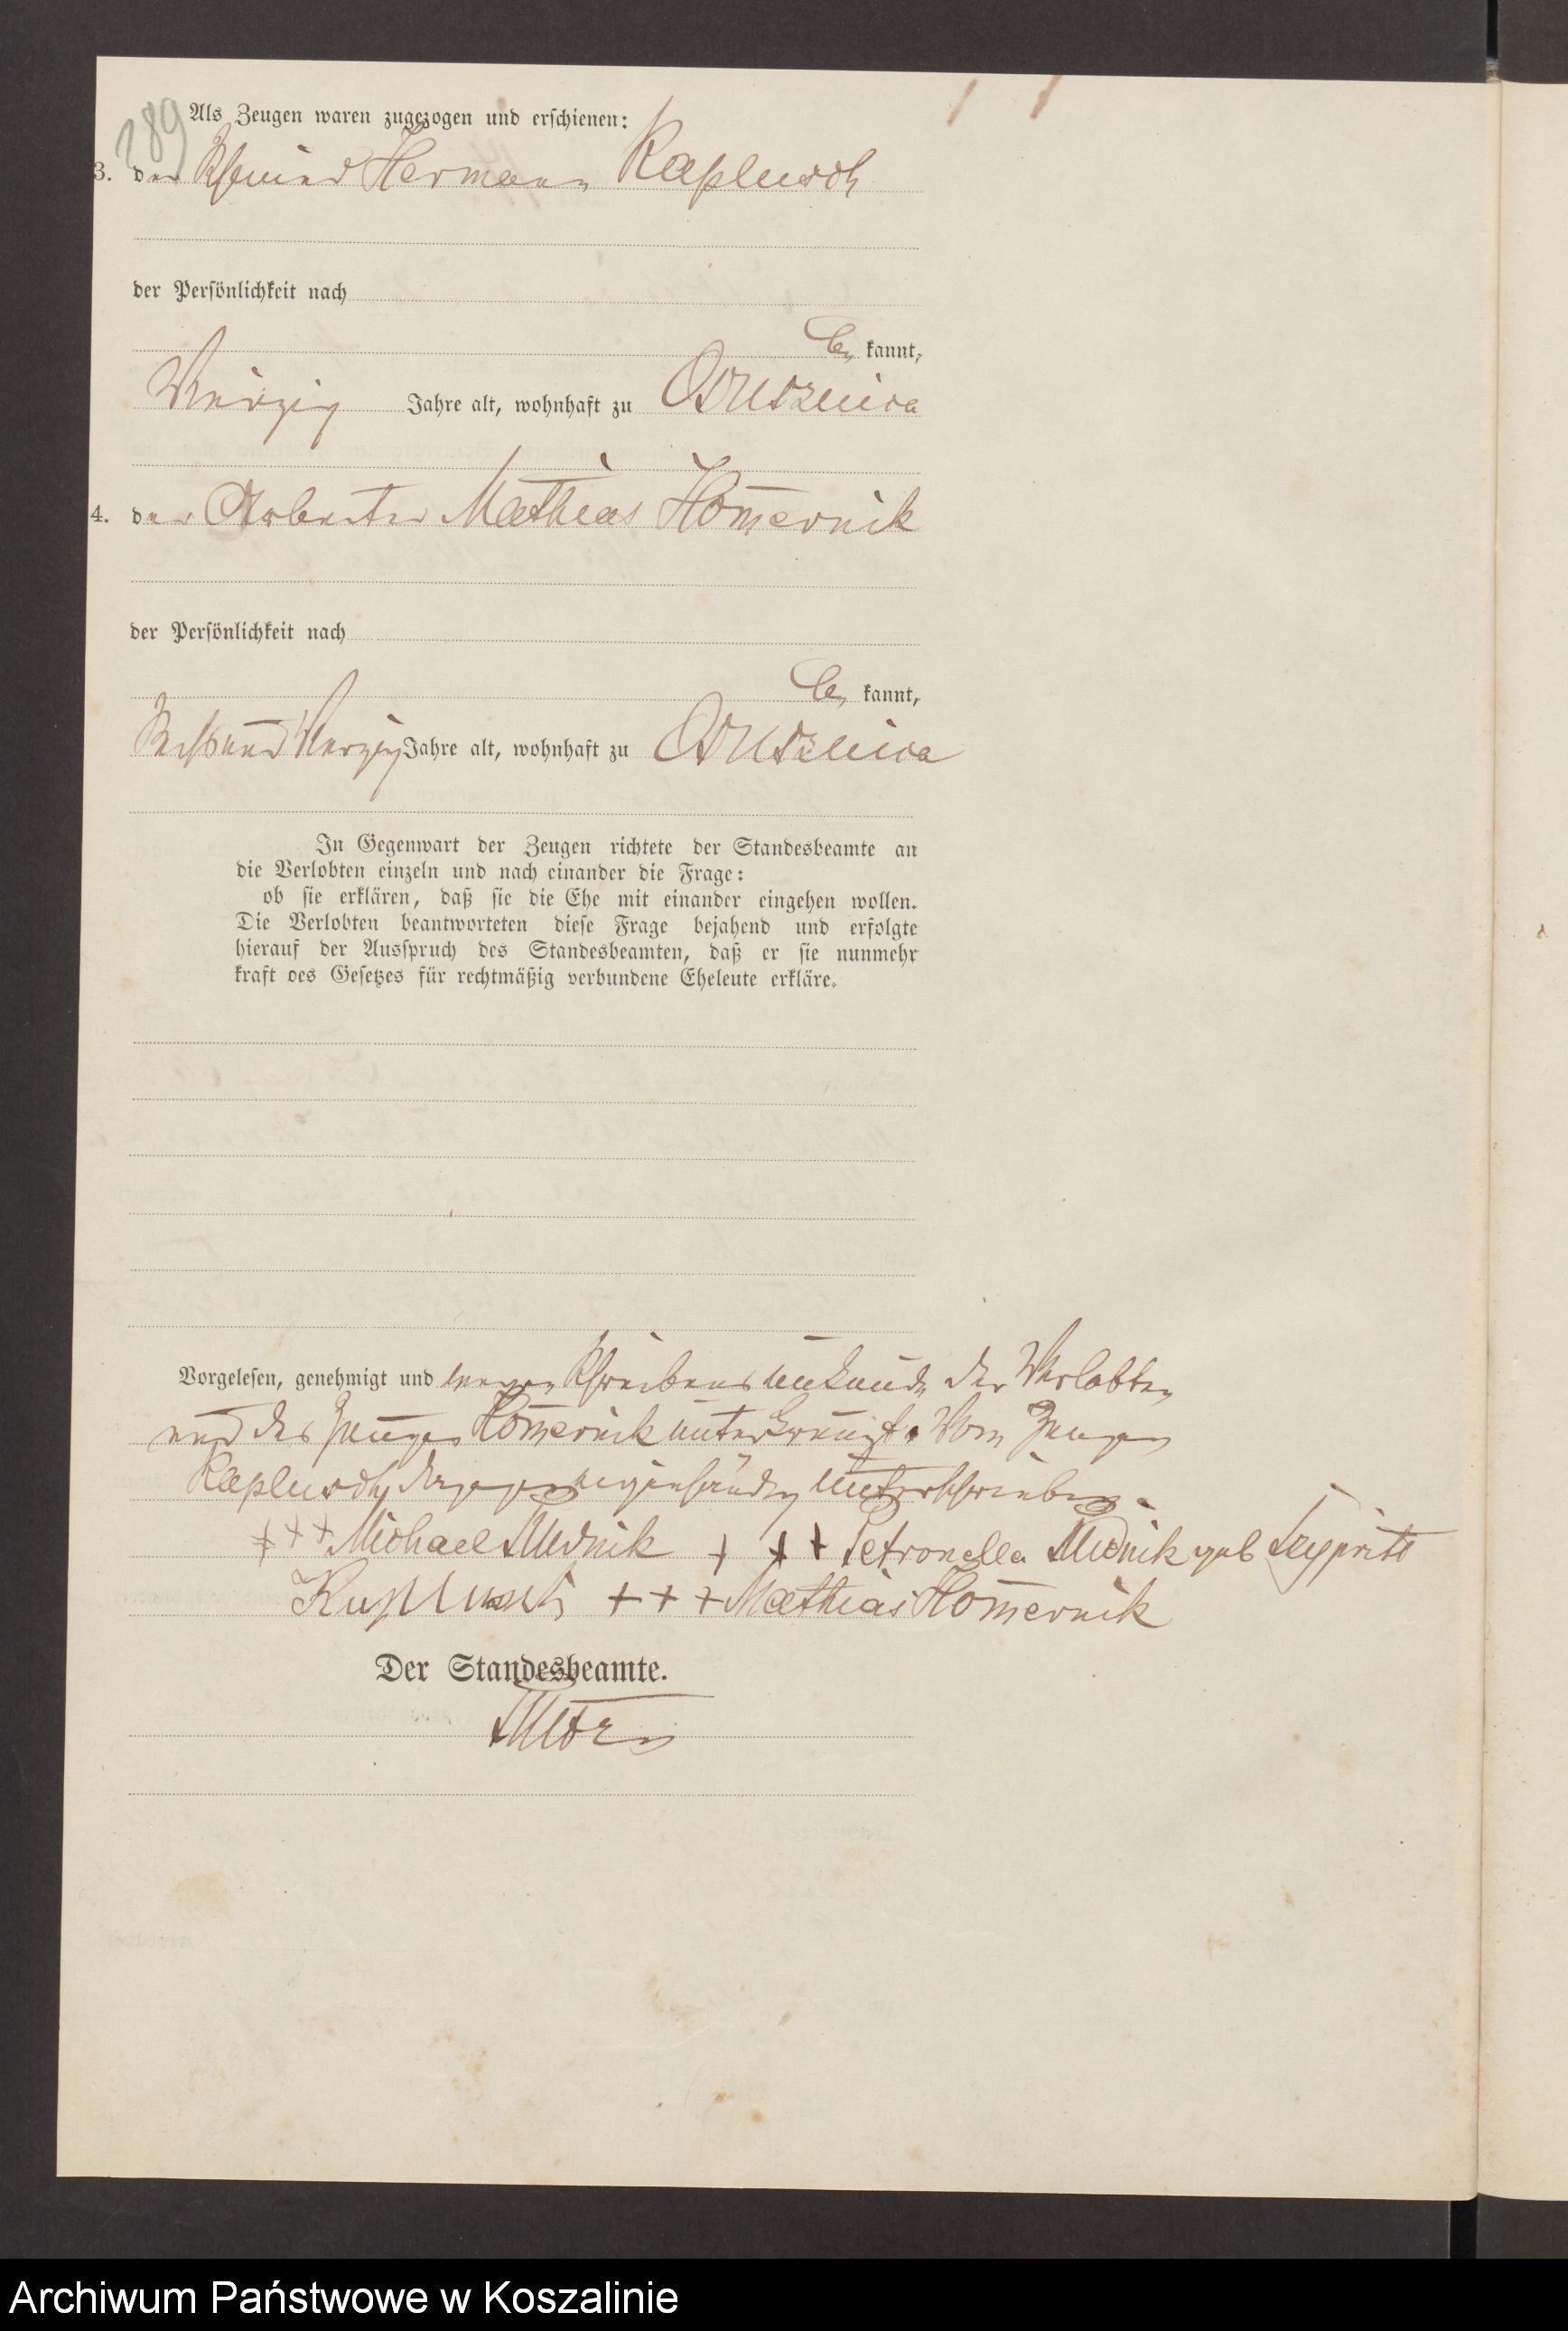 189
Als Zeugen waren zugezogen und erschienen:
3. der Schmied Hermann Kaplusch
der Persönlichkeit nach
be kannt,
Vierzig Jahre alt, wohnhaft zu Ossusznica
4. der Arbeiter Mathias Hom̄ernik
der Persönlichkeit nach
be kannt,
Sechsundvierzig Jahre alt, wohnhaft zu Ossusznica
In Gegenwart der Zeugen richtete der Standesbeamte an
die Verlobten einzeln und nach einander die Frage:
ob sie erklären, daß sie die Ehe mit einander eingehen wollen.
Die Verlobten beantworteten diese Frage bejahend und erfolgte
hierauf der Ausspruch des Standesbeamten, daß er sie nunmehr
kraft des Gesetzes für rechtmäßig verbundene Eheleute erkläre.
Vorgelesen, genehmigt und wegen Schreibensunkunde der Verlobten
und des Zeugen Hom̄ernik unterkreuzt. Vom Zeugen
Kaplusch dagegen eigenhändig unterschrieben.
+++ Michael Mudnik +++ Petronella Mudnik geb
Kaplusch +++ Mathias Hom̄ernik
Der Standesbeamte.
Archiwum Państwowe w Koszalinie